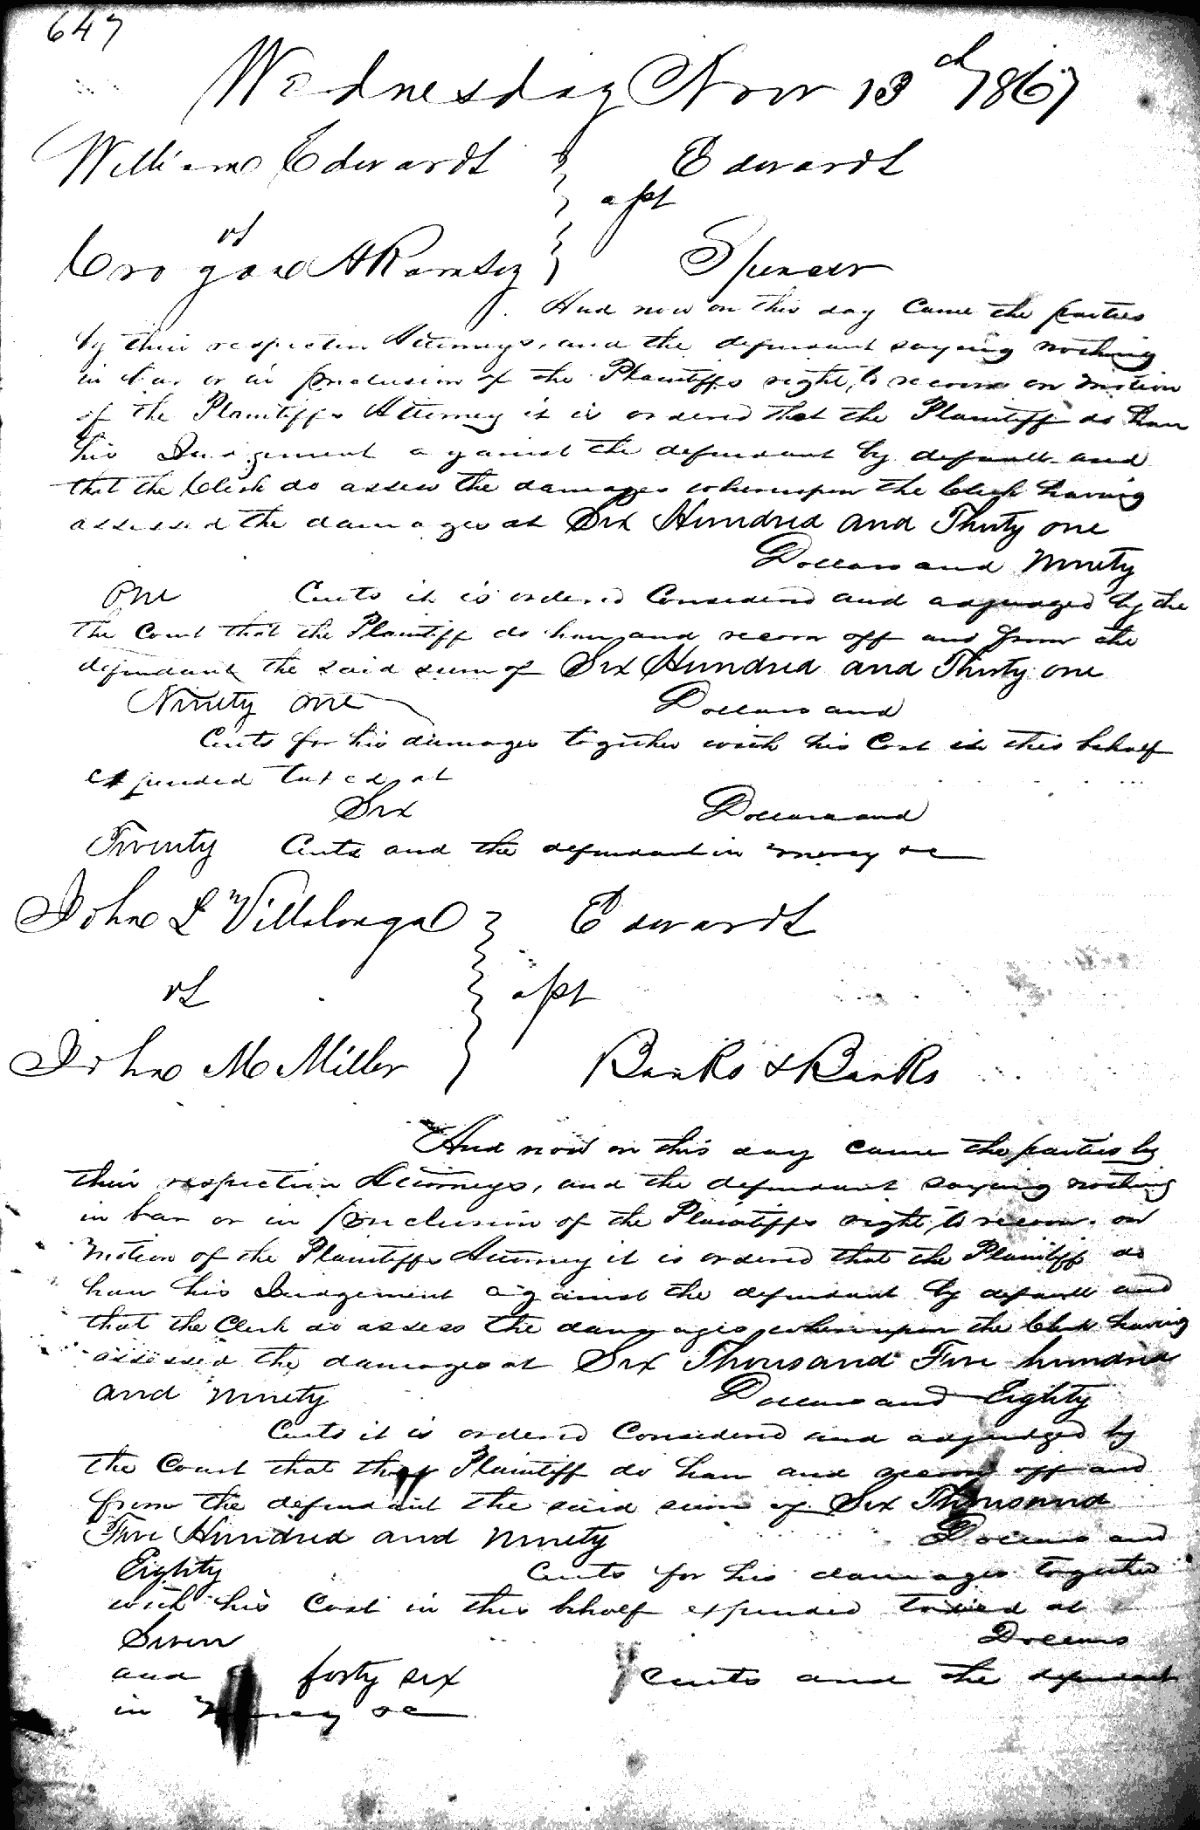 647
Wednesday Nov 13th 1867
William Edwards Edwards
apt
vs
Croghan H Ramsey Spencer
And now on this day Came the parties
by their respective Attorneys, and the defendant saying nothing
in bar or in preclusion of the Plaintiffs right to recover on motion
of the Plaintiffs Attorney it is ordered that the Plaintiff do have
his Judgement against the defendant by default and
that the Clerk do assess the damages whereupon the Clerk having
assessed the damages at Six Hundred and Thirty one
Dollars and Ninety
One Cents it is ordered Considered and adjudged by the
the Court that the Plaintiff do have and recover off and from the
defendant the said sum of Six Hundred and Thirty one
Ninety one Dollars and
Cents for his damages together with his Cost in this behalf
expended taxed at
Six Dollars and
Twenty Cents and the defendant in mercy &c
John L Villalonga Edwards
vs apt
John M Miller Banks & Banks
And now on this day came the parties by
their respective Attorneys, and the defendant saying nothing
in bar or in preclusion of the Plaintiffs right to recover on
motion of the Plaintiffs Attorney it is ordered that the Plaintiff do
have his Judgement against the defendant by default and
that the Clerk do assess the damages whereupon the Clerk having
assessed the damages at Six Thousand Five hundred
and Ninety Dollars and Eighty
Cents it is ordered Considered and adjudged by
the Court that the Plaintiff do have and recover off and
from the defendant the said sum of Six Thousand
Five Hundred and Ninety Dollars and
Eighty Cents for his damages together
with his Cost in this behalf expended taxed at
Seven Dollars
and forty six Cents and the defendant
in mercy &c